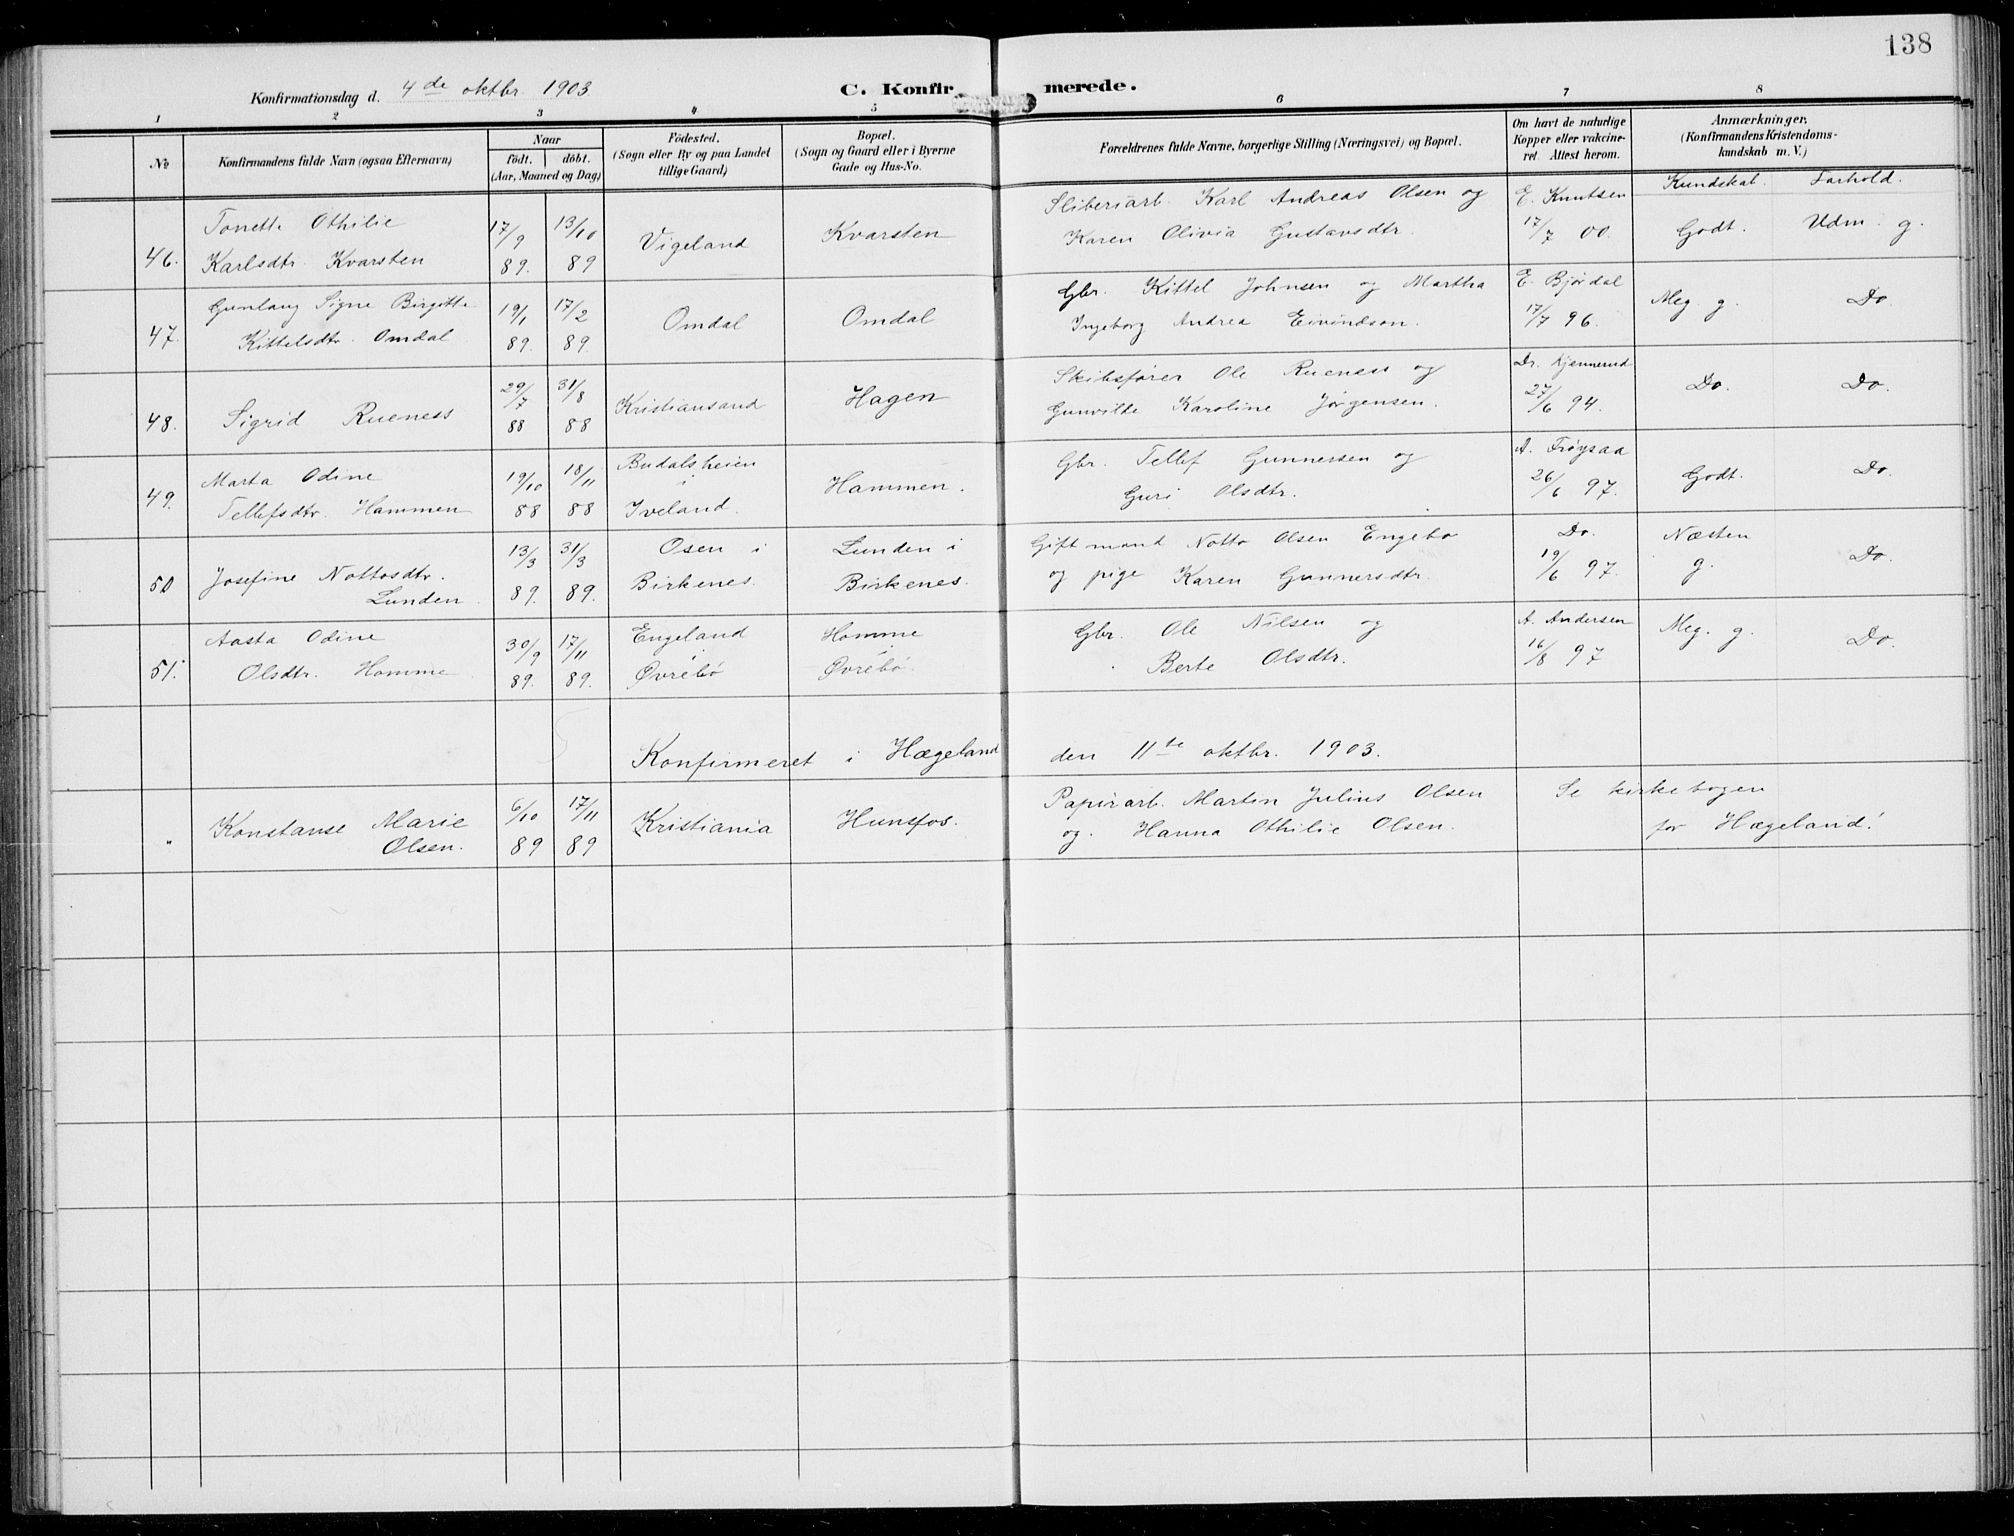 138
Konfirmationsdag d. 4de oktbr. 1903
C. Konfirmerede.
1 2 3 4 5 6 7 8
No
Konfirmandens fulde Navn (ogsaa Efternavn)
Naar
födt. döbt.
(Aar, Maaned og Dag)
Födested.
(Sogn eller By og paa Landet
tillige Gaard)
Bopæl.
(Sogn og Gaard eller i Byerne
Gade og Hus-No.
Forældrenes fulde Navne, borgerlige Stilling (Næringsvei) og Bopæl.
Om havt de naturlige
Kopper eller vakcine-
ret. Attest herom.
Anmærkninger.
(Konfirmandens Kristendoms-
kundskab m. V.)
Kundskab. Forhold.
46. Tonette Othilie
Karlsdtr. Kvarsten
17/9 89. 13/10 89
Vigeland
Kvarsten
Sliberiarb. Karl Andreas Olsen og
Karen Olivia Gustavsdtr.
E. Knutsen
17/7 00.
Godt. Udm. g.
47. Gunlaug Signe Birgitte
Kittelsdtr. Omdal
19/1 89. 17/2 89.
Omdal
Omdal
Gbr. Kittel Johnsen og Martha
Ingeborg Andrea Eivindson.
E. Bjørdal
17/7 96.
Meg. g. Do
48. Sigrid Rueness
29/7 88 31/8 88
Kristiansand
Hagen
Skibsfører Ole Rueness og
Gunvilde Karoline Jørgensen.
Dr. Kjennerud
27/6 94.
Do. Do.
49. Marta Odine
Tellefsdtr. Hammen
19/10 88 18/11 88
Budalsheien
i
Iveland.
Hammen.
Gbr. Tellef Gunnersen og
Guri Olsdtr.
A. Frøysaa
26/6 97.
Godt. Do.
50 Josefine Nottosdtr.
Lunden
13/3 89. 31/3 89.
Osen i
Birkenes.
Lunden i
Birkenes.
Gift mand Notto Olsen Engebo
og pige Karen Gunnersdtr.
Do.
19/6 97.
Næsten
g.
Do.
51. Aasta Odine
Olsdtr. Homme
30/9 89. 17/11 89.
Engeland
Øvrebö
Homme
Øvrebö.
Gbr. Ole Nilsen og
Berte Olsdtr.
A. Andersen
16/8 97
Meg. g. Do.
Konfirmeret i Hægeland den 11te oktbr. 1903.
" Konstanse Marie
Olsen.
6/10 89 17/11 89
Kristiania
Hunsfos.
Papirarb. Martin Julius Olsen
og. Hanna Othilie Olsen.
Se kirkebogen
for Hægeland!